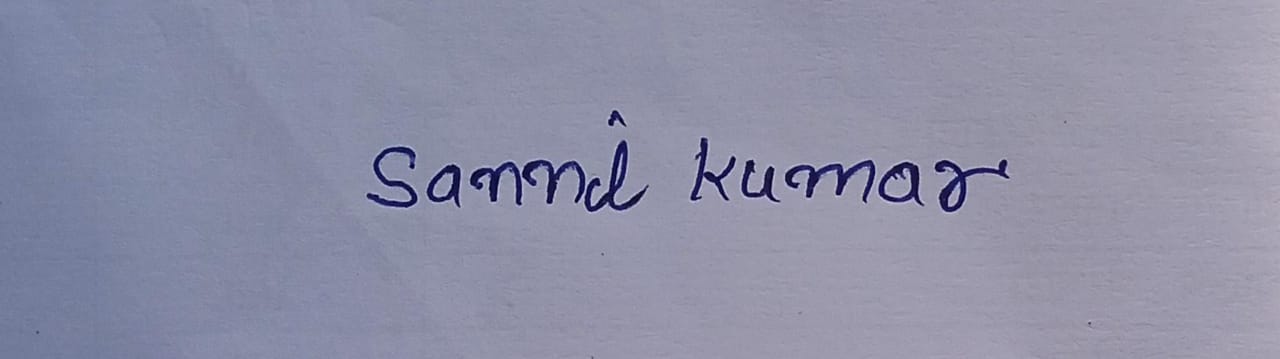 Sanni Kumar